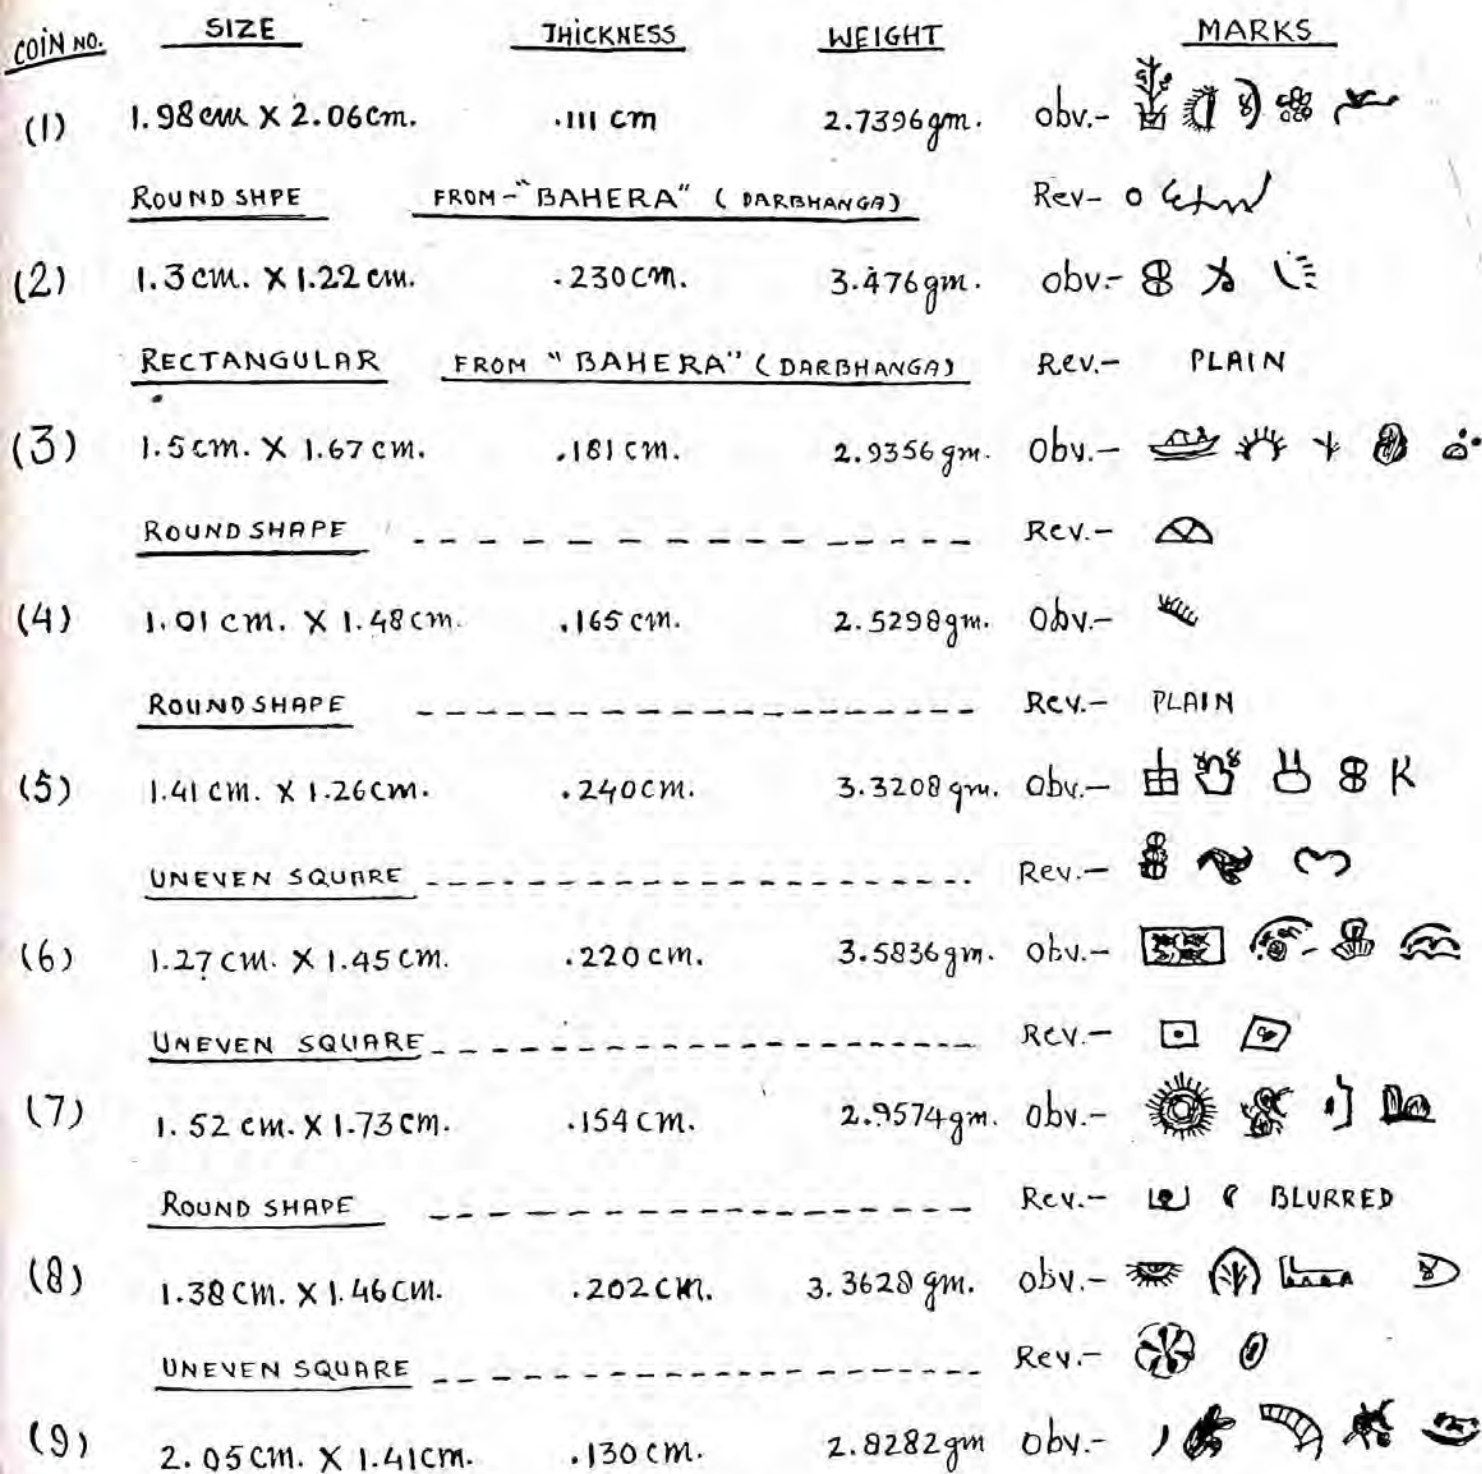 COIN NO. SIZE THICKNESS WEIGHT MARKS
(1) 1.98 cm X 2.06 cm. .111 cm 2.7396 gm. obv.-
ROUND SHPE FROM - "BAHERA" ( DARBHANGA) Rev-
(2) 1.3 cm. X 1.22 cm. .230 cm. 3.476 gm. obv.-
RECTANGULAR FROM "BAHERA" ( DARBHANGA) Rev.- PLAIN
(3) 1.5 cm. X 1.67 cm. .181 cm. 2.9356 gm. Obv.-
ROUND SHAPE Rev.-
(4) 1.01 cm. X 1.48 cm. .165 cm. 2.5298 gm. Obv.-
ROUND SHAPE Rev.- PLAIN
(5) 1.41 cm. X 1.26 cm. .240 cm. 3.3208 gm. Obv.- K
UNEVEN SQUARE Rev.-
(6) 1.27 cm. X 1.45 cm. .220 cm. 3.5836 gm. Obv.-
UNEVEN SQUARE Rev.-
(7) 1.52 cm. X 1.73 cm. .154 cm. 2.9574 gm. Obv.-
ROUND SHAPE Rev.- BLURRED
(8) 1.38 cm. X 1.46 cm. .202 cm. 3.3628 gm. obv.-
UNEVEN SQUARE Rev.-
(9) 2.05 cm. X 1.41 cm. .130 cm. 2.8282 gm Obv.-